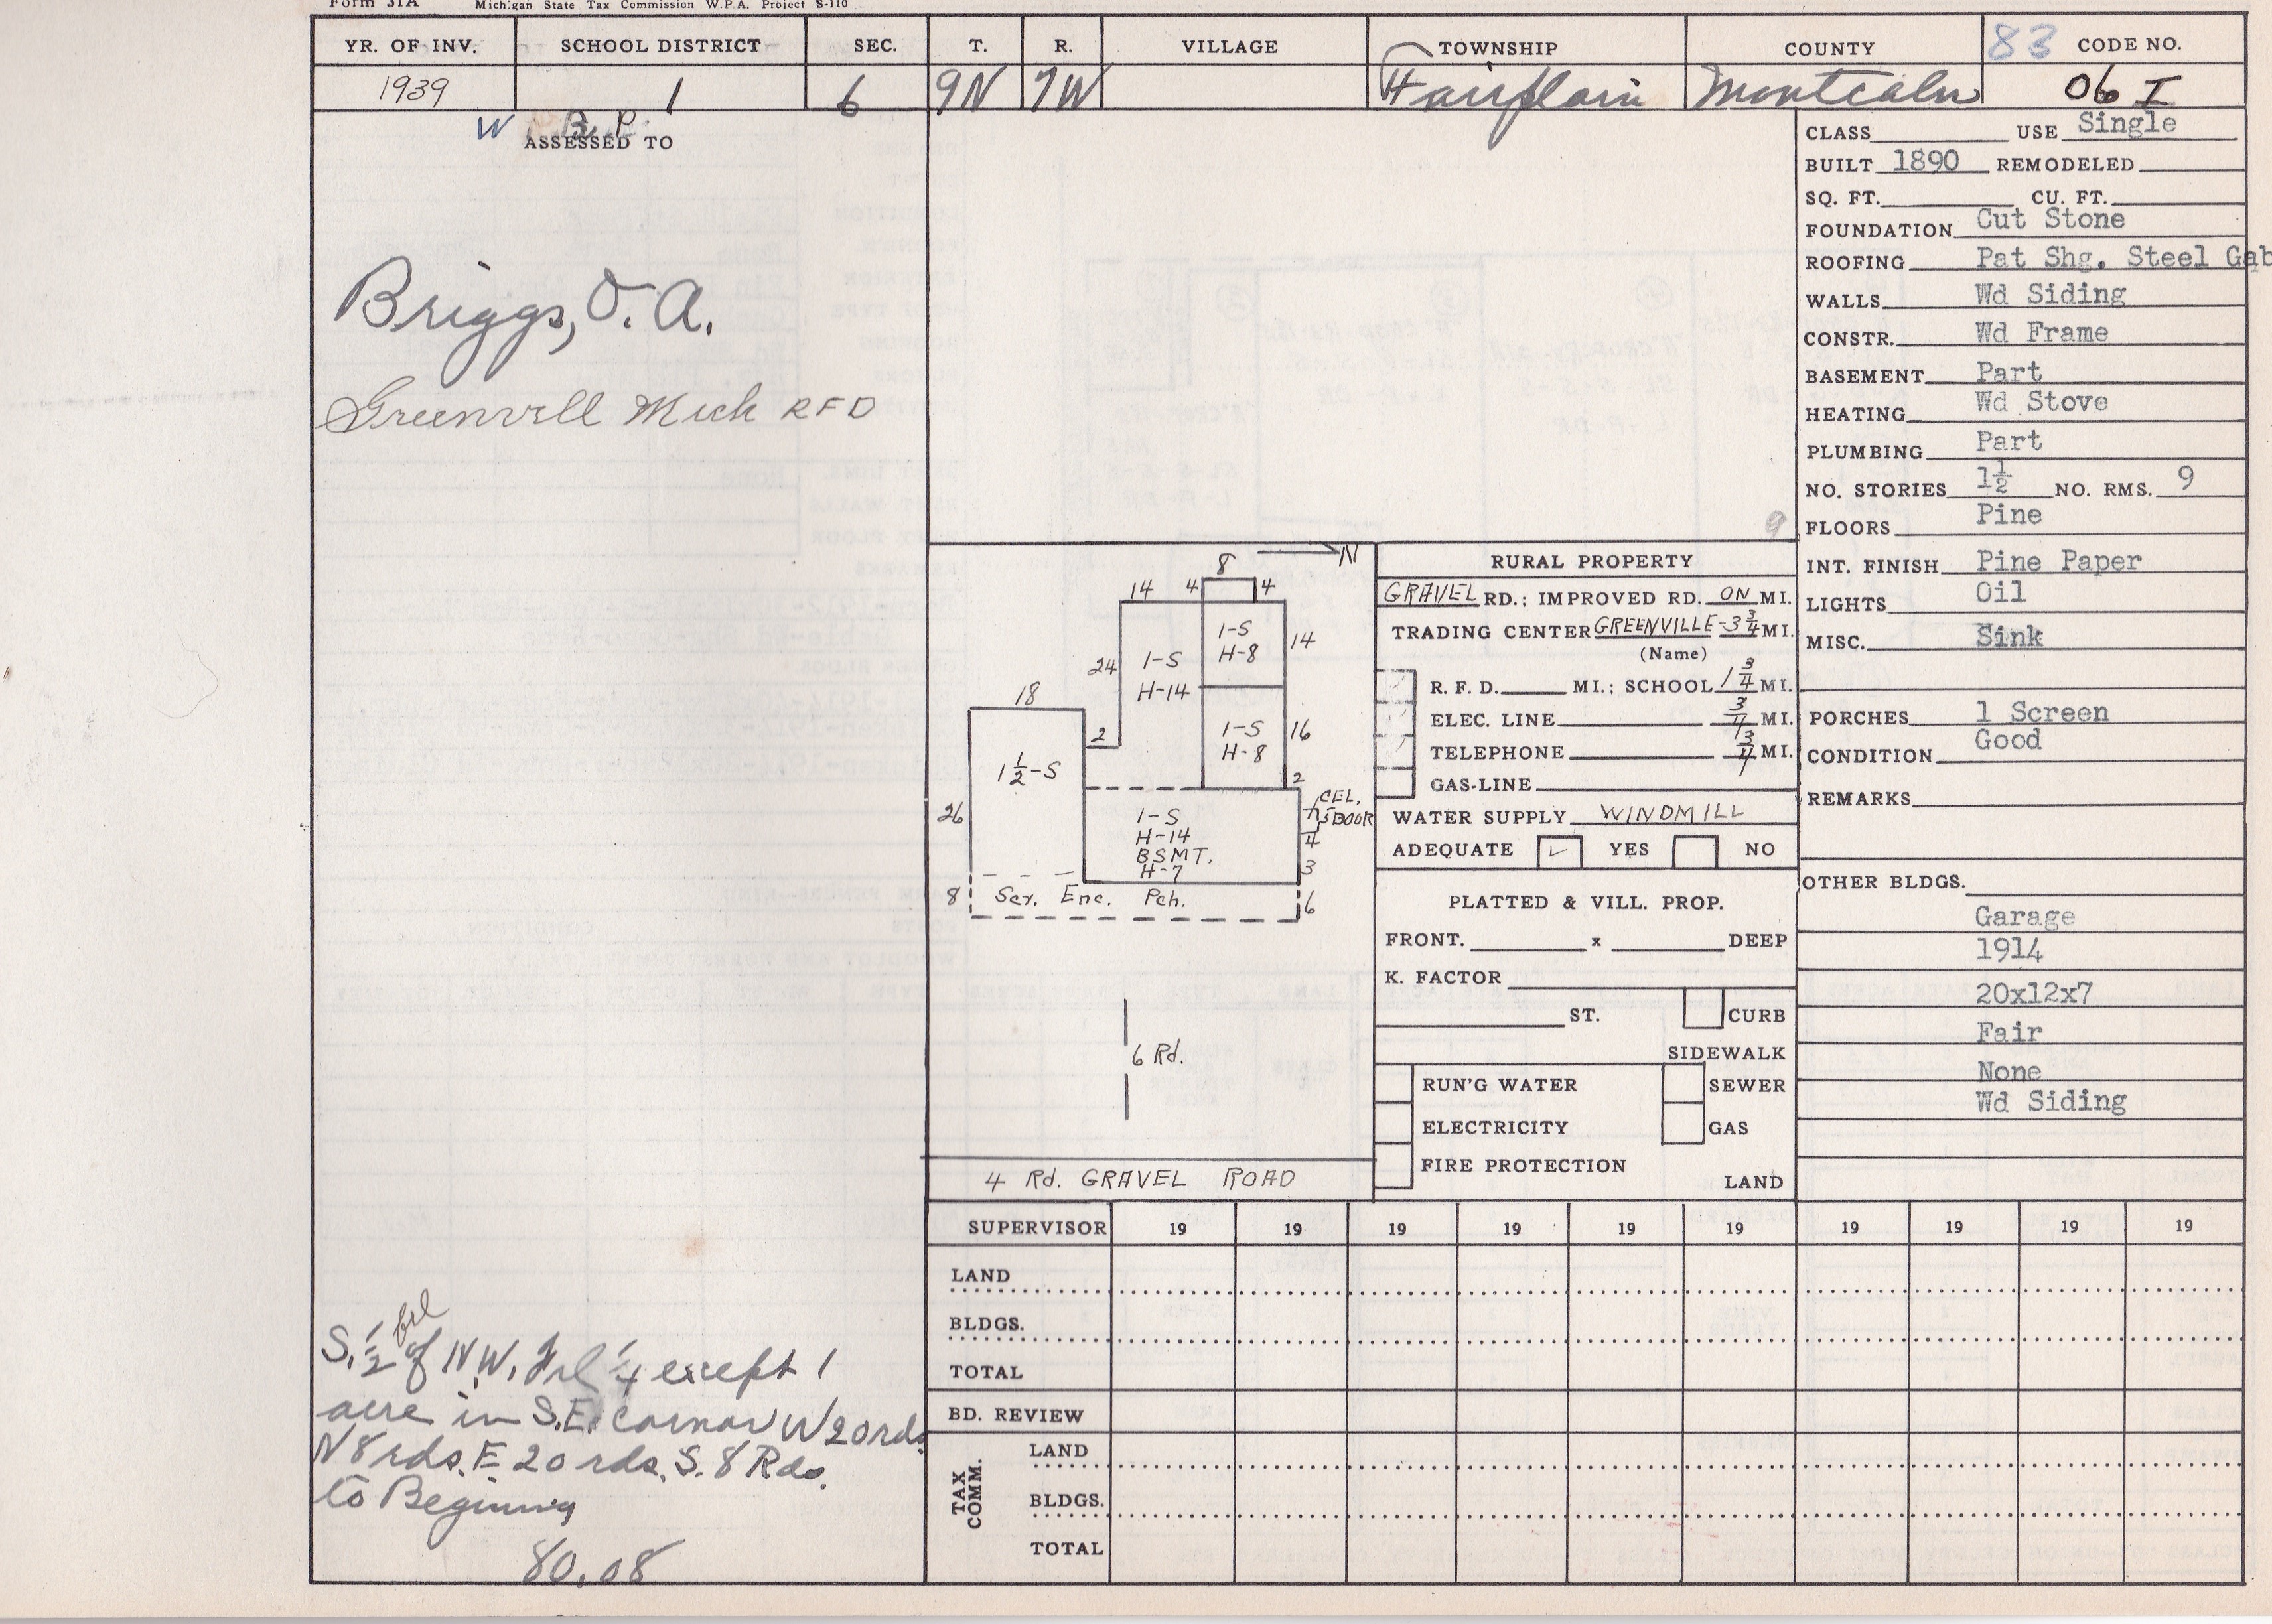 Form 31A Michigan State Tax Commission W.P.A. Project S-110
YR. OF INV. SCHOOL DISTRICT SEC. T. R. VILLAGE TOWNSHIP COUNTY 83 CODE NO.
1939 1 6 9N 7W Fairplain Montcalm 06 I
W B. P.
ASSESSED TO
Briggs, O. A.
Greenvill Mich RFD
S. 1/2 frl of N.W. Frl 1/4 except 1
acre in S.E. cornor W 20 rds
N 8 rds. E 20 rds. S. 8 Rds.
to Beginning
80.08
8 N
14 4 4
1-S
H-8
14
24 1-S
H-14
18
2
1-S
H-8
16
1 1/2-S
2
CEL.
DOOR
5
26
1-S
H-14
BSMT.
H-7
4
3
8 Scr. Enc. Pch. 6
6 Rd.
4 Rd. GRAVEL ROAD
9
RURAL PROPERTY
GRAVEL RD.; IMPROVED RD. ON MI.
TRADING CENTER GREENVILLE-3 3/4 MI.
(Name)
R. F. D. MI.; SCHOOL 1 3/4 MI.
ELEC. LINE 3/4 MI.
TELEPHONE 3/4 MI.
GAS-LINE
WATER SUPPLY WINDMILL
ADEQUATE ✓ YES NO
PLATTED & VILL. PROP.
FRONT. x DEEP
K. FACTOR
ST. CURB
SIDEWALK
RUN'G WATER SEWER
ELECTRICITY GAS
FIRE PROTECTION
LAND
CLASS USE Single
BUILT 1890 REMODELED
SQ. FT. CU. FT.
FOUNDATION Cut Stone
ROOFING Pat Shg. Steel Gab
WALLS Wd Siding
CONSTR. Wd Frame
BASEMENT Part
HEATING Wd Stove
PLUMBING Part
NO. STORIES 1½ NO. RMS. 9
FLOORS Pine
INT. FINISH Pine Paper
LIGHTS Oil
MISC. Sink
PORCHES 1 Screen
CONDITION Good
REMARKS
OTHER BLDGS.
Garage
1914
20x12x7
Fair
None
Wd Siding
SUPERVISOR 19 19 19 19 19 19 19 19 19 19
LAND
BLDGS.
TOTAL
BD. REVIEW
TAX COMM.
LAND
BLDGS.
TOTAL